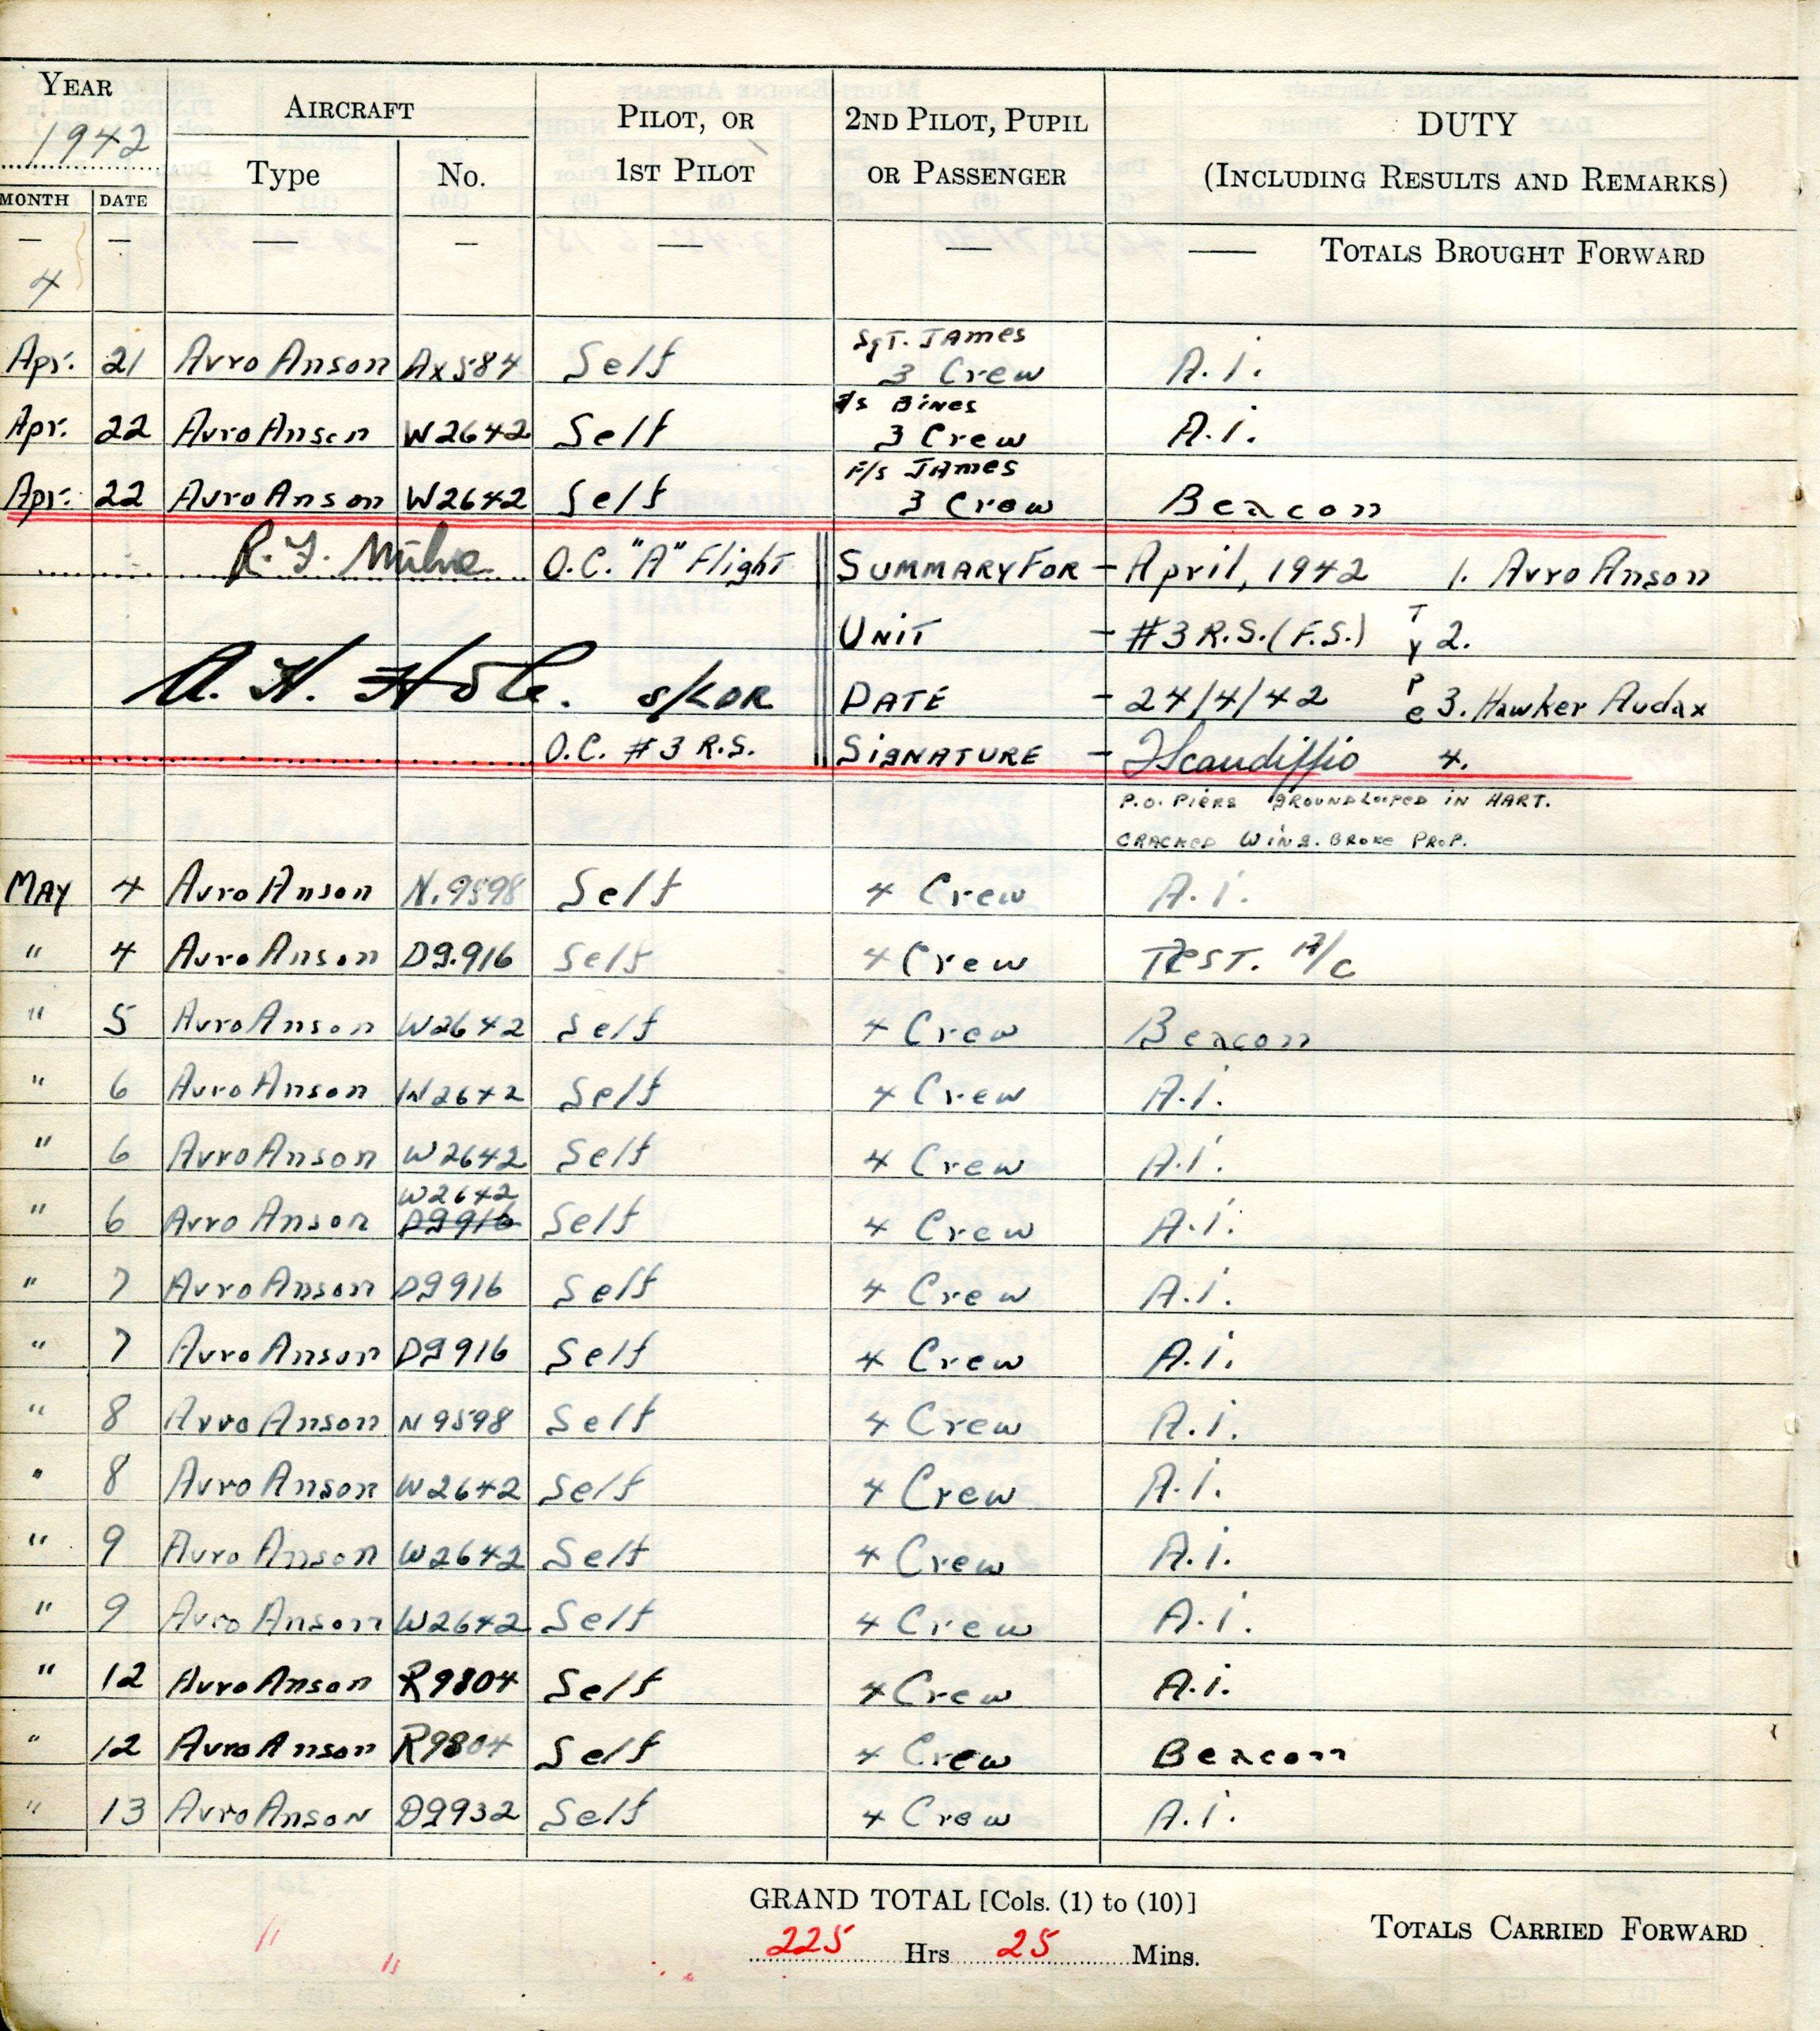 YEAR 1942 AIRCRAFT PILOT, OR 1ST PILOT 2ND PILOT, PUPIL OR PASSENGER DUTY (INCLUDING RESULTS AND REMARKS)
MONTH DATE Type No.
— — — — — — — TOTALS BROUGHT FORWARD
4
Apr. 21 Avro Anson AX584 Self Sgt. James 3 Crew A.i.
Apr. 22 Avro Anson W2642 Self F/s Bines 3 Crew A.i.
Apr. 22 Avro Anson W2642 Self F/s James 3 Crew Beacon
R.F. Milne O.C. "A" Flight SUMMARY FOR - April, 1942 1. Avro Anson
UNIT - #3 R.S. (F.S.) Type 2.
A. H. Hole. s/LDR DATE - 24/4/42 3. Hawker Audax
O.C. #3 R.S. SIGNATURE - Scandiffio 4.
P.O. PIERS GROUNDLOOPED IN HART.
CRACKED WING. BROKE PROP.
MAY 4 Avro Anson N.9598 Self 4 Crew A.i.
" 4 Avro Anson DG.916 Self 4 Crew TEST. A/C
" 5 Avro Anson W2642 Self 4 Crew Beacon
" 6 Avro Anson W2642 Self 4 Crew A.i.
" 6 Avro Anson W2642 Self 4 Crew A.i.
" 6 Avro Anson W2642 DG916 Self 4 Crew A.i.
" 7 Avro Anson DG916 Self 4 Crew A.i.
" 7 Avro Anson DG916 Self 4 Crew A.i.
" 8 Avro Anson N9598 Self 4 Crew A.i.
" 8 Avro Anson W2642 Self 4 Crew A.i.
" 9 Avro Anson W2642 Self 4 Crew A.i.
" 9 Avro Anson W2642 Self 4 Crew A.i.
" 12 Avro Anson R9804 Self 4 Crew A.i.
" 12 Avro Anson R9804 Self 4 Crew Beacon
" 13 Avro Anson DG932 Self 4 Crew A.i.
GRAND TOTAL [Cols. (1) to (10)]
225 Hrs 25 Mins.
TOTALS CARRIED FORWARD